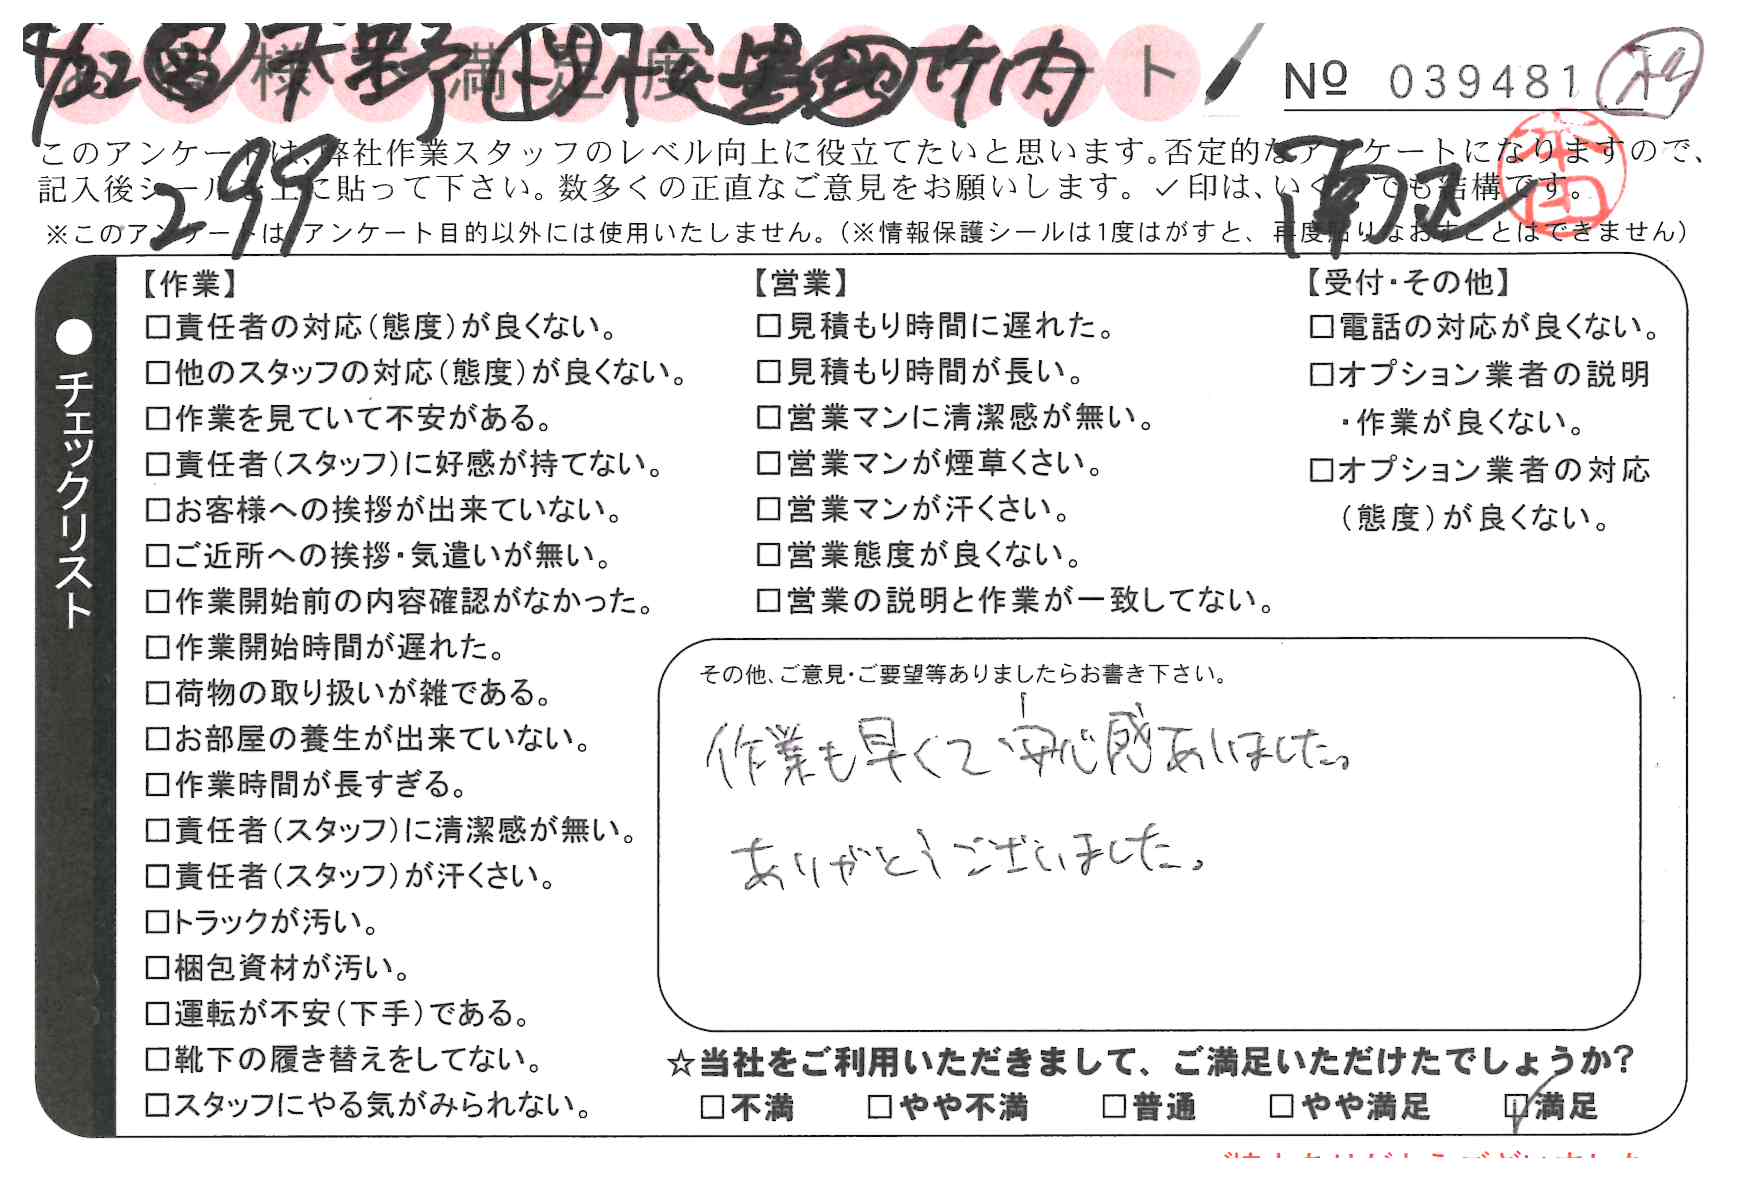 4/22 天野 桜 竹内
お客様満足度アンケート
Nº 039481
このアンケートは、弊社作業スタッフのレベル向上に役立てたいと思います。否定的なアンケートになりますので、
記入後シールを上に貼って下さい。数多くの正直なご意見をお願いします。✓印は、いくつでも結構です。
299
南区
本田
※このアンケートは、アンケート目的以外には使用いたしません。(※情報保護シールは1度はがすと、再度貼りなおすことはできません)
●チェックリスト
【作業】
□責任者の対応(態度)が良くない。
□他のスタッフの対応(態度)が良くない。
□作業を見ていて不安がある。
□責任者(スタッフ)に好感が持てない。
□お客様への挨拶が出来ていない。
□ご近所への挨拶・気遣いが無い。
□作業開始前の内容確認がなかった。
□作業開始時間が遅れた。
□荷物の取り扱いが雑である。
□お部屋の養生が出来ていない。
□作業時間が長すぎる。
□責任者(スタッフ)に清潔感が無い。
□責任者(スタッフ)が汗くさい。
□トラックが汚い。
□梱包資材が汚い。
□運転が不安(下手)である。
□靴下の履き替えをしてない。
□スタッフにやる気がみられない。
【営業】
□見積もり時間に遅れた。
□見積もり時間が長い。
□営業マンに清潔感が無い。
□営業マンが煙草くさい。
□営業マンが汗くさい。
□営業態度が良くない。
□営業の説明と作業が一致してない。
【受付・その他】
□電話の対応が良くない。
□オプション業者の説明
・作業が良くない。
□オプション業者の対応
(態度)が良くない。
その他、ご意見・ご要望等ありましたらお書き下さい。
作業も早くて安心感ありました。
ありがとうございました。
☆当社をご利用いただきまして、ご満足いただけたでしょうか?
□不満 □やや不満 □普通 □やや満足 ☑満足